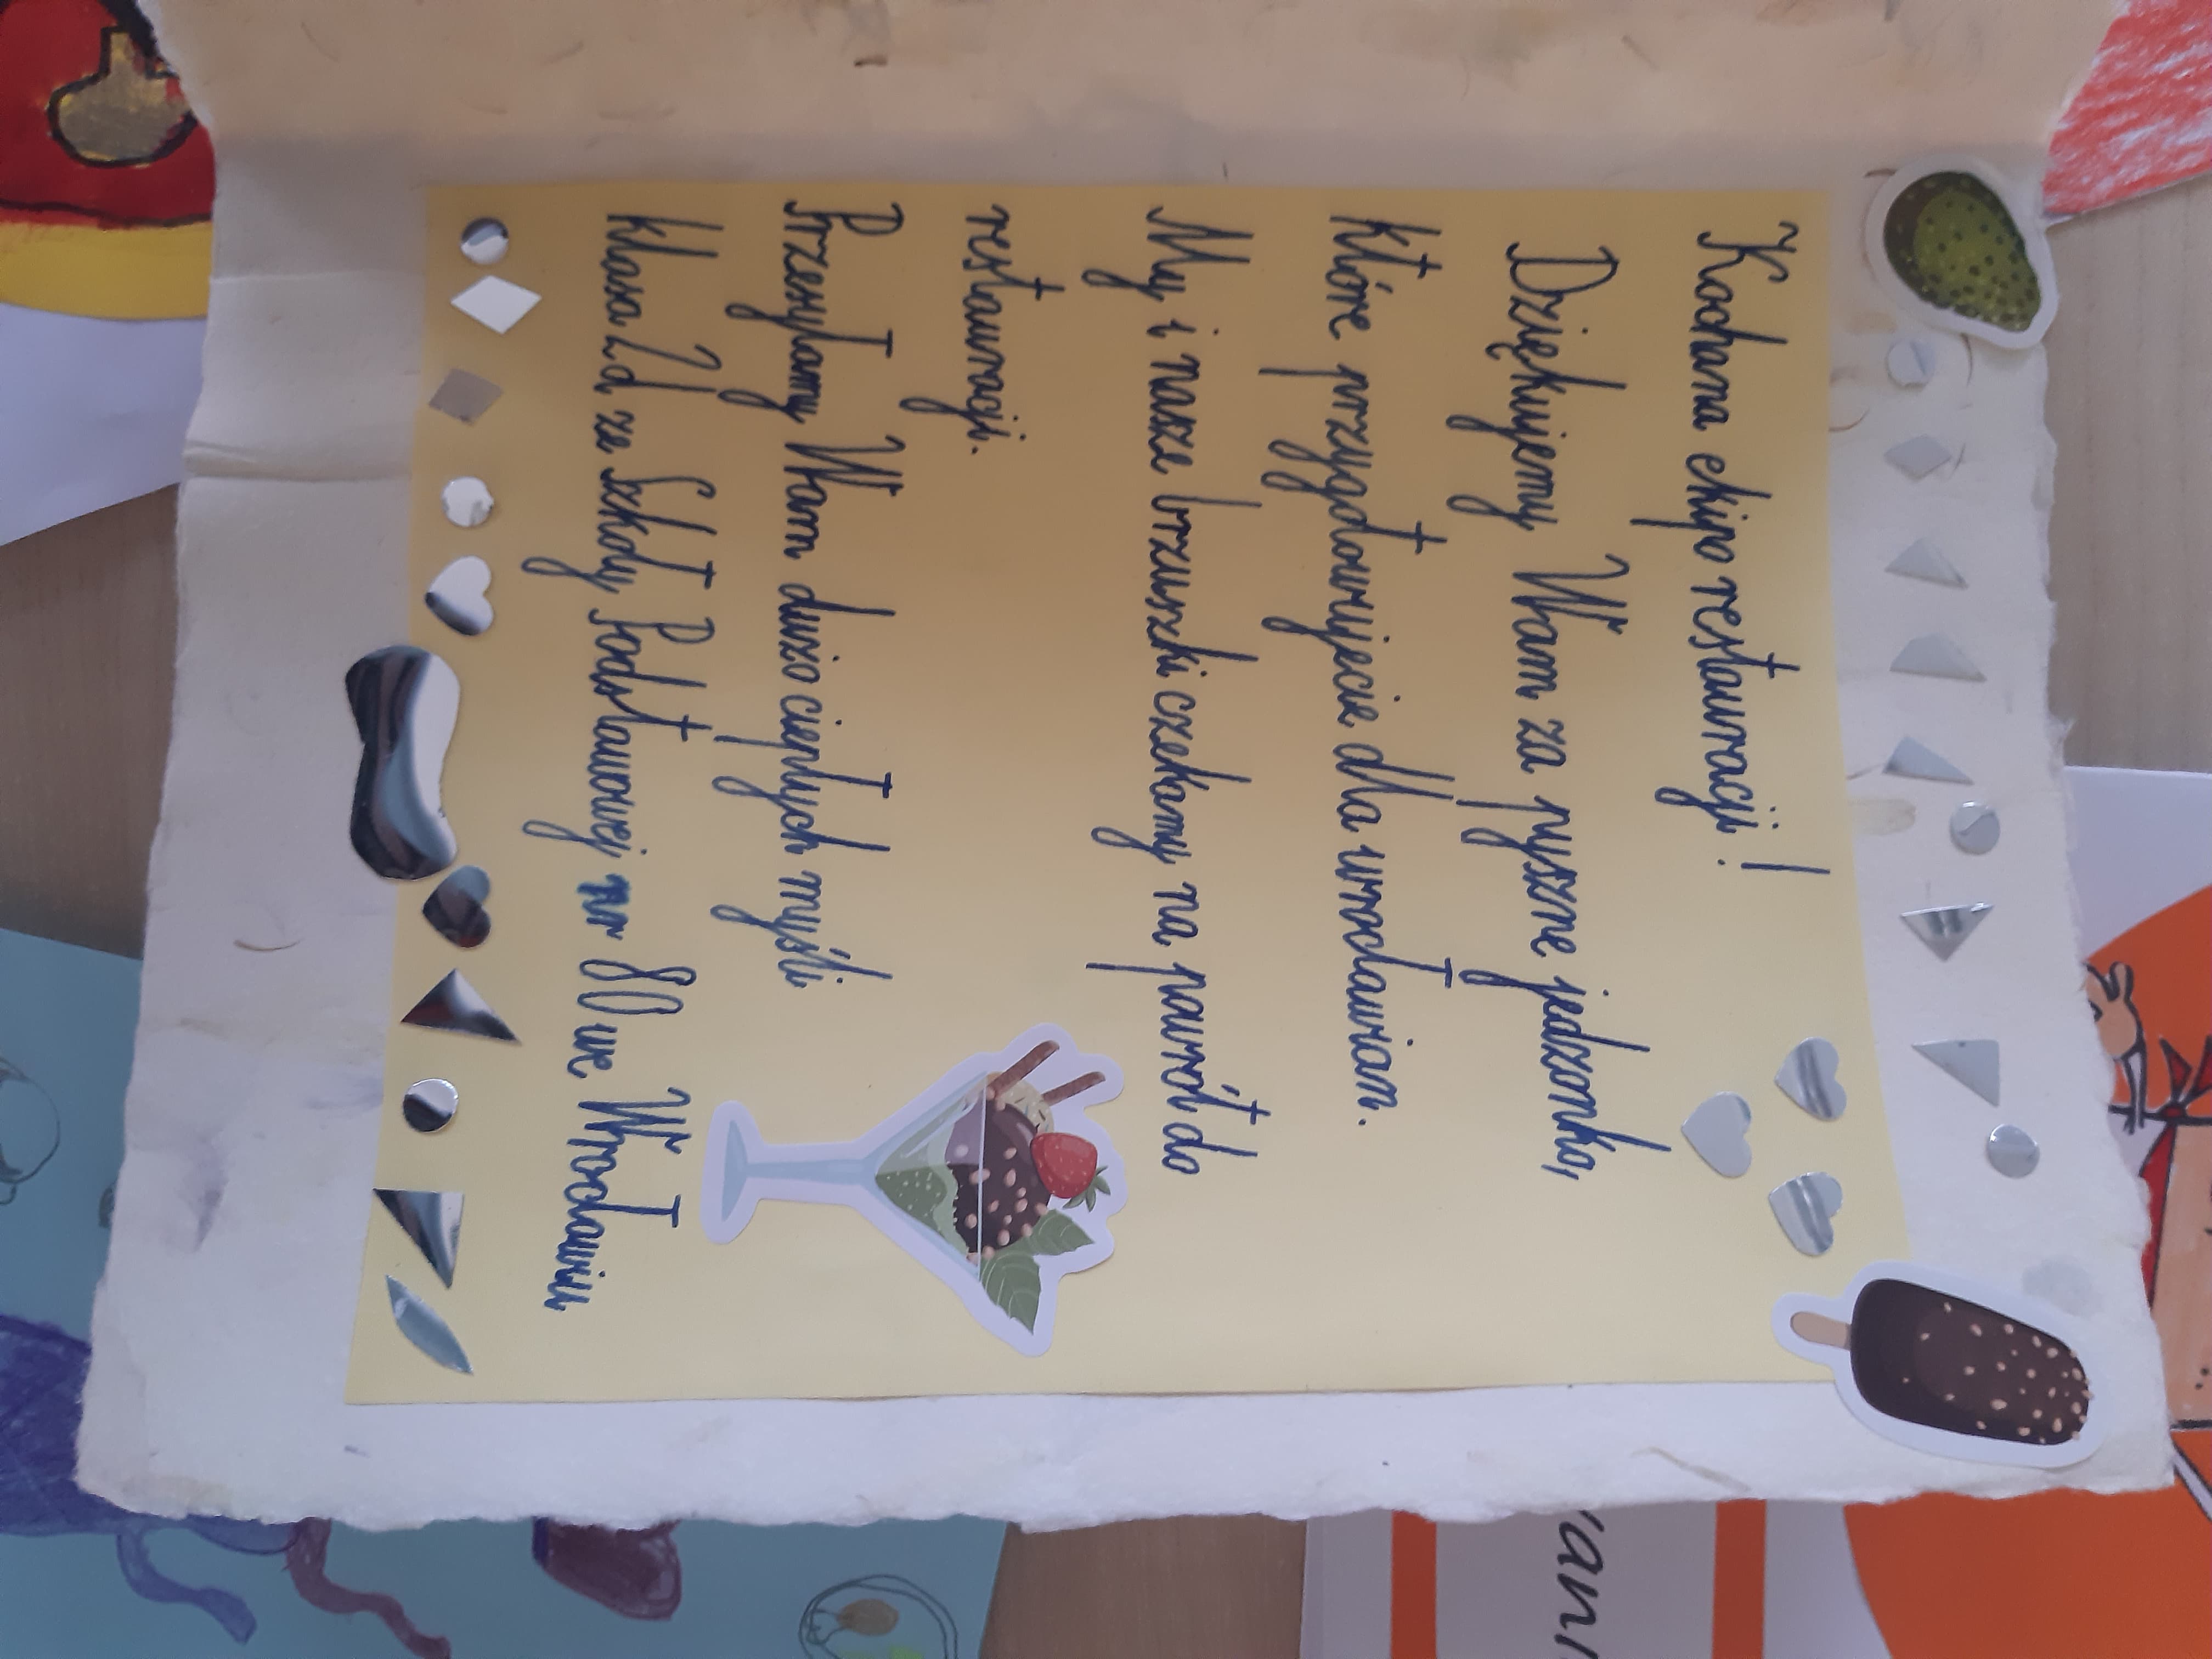 Kochana ekipo restauracji!
Dziękujemy Wam za pyszne jedzonko,
które przygotowujecie dla wrocławian.
My i nasze brzuszki czekamy na powrót do
restauracji.
Przesyłamy Wam dużo ciepłych myśli
klasa 2d ze Szkoły Podstawowej nr 80 we Wrocławiu